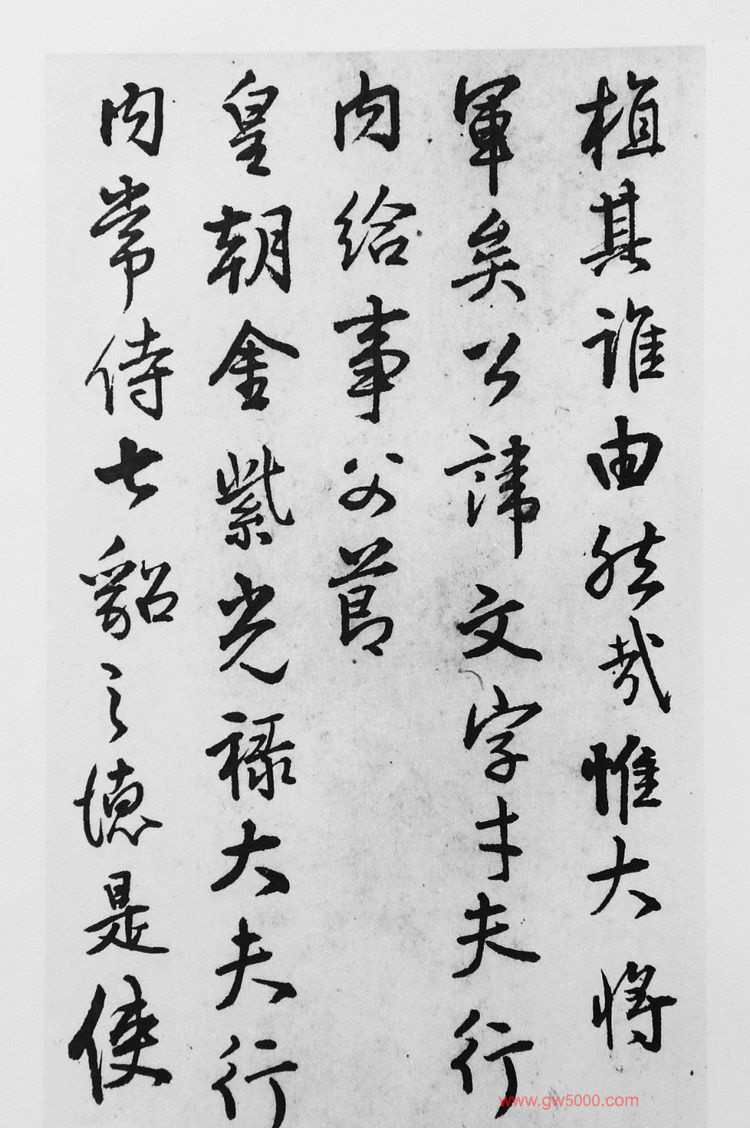 植其誰由然哉惟大將
軍矣公諱文字才夫行
内給事父節
皇朝金紫光禄大夫行
内常侍七貂之德是使
www.gw5000.com